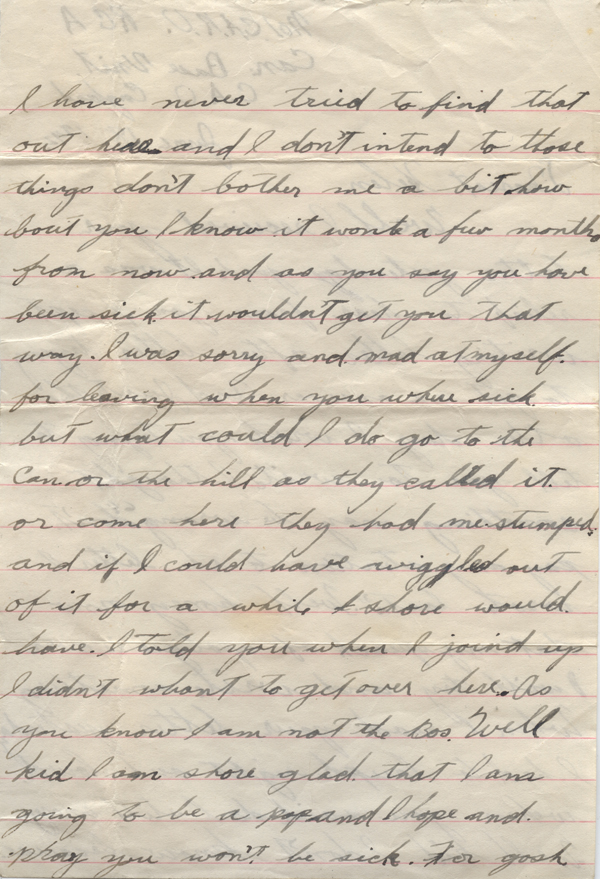 I have never tried to find that
out here and I don't intend to those
things don't bother me a bit. how
bout you I know it wont a few months
from now and as you say you have
been sick it wouldn't get you that
way. I was sorry and mad at myself.
for leaving when you where sick.
but what could I do go to the
can or the hill as they called it.
or come here they had me stumped.
and if I could have wiggled out
of it for a while I shore would.
have. I told you when I joind up
I didn't whant to get over here. As
you know I am not the Bos. Well
kid I am shore glad that I am
going to be a pop and I hope and.
pray you won't be sick. For gosh